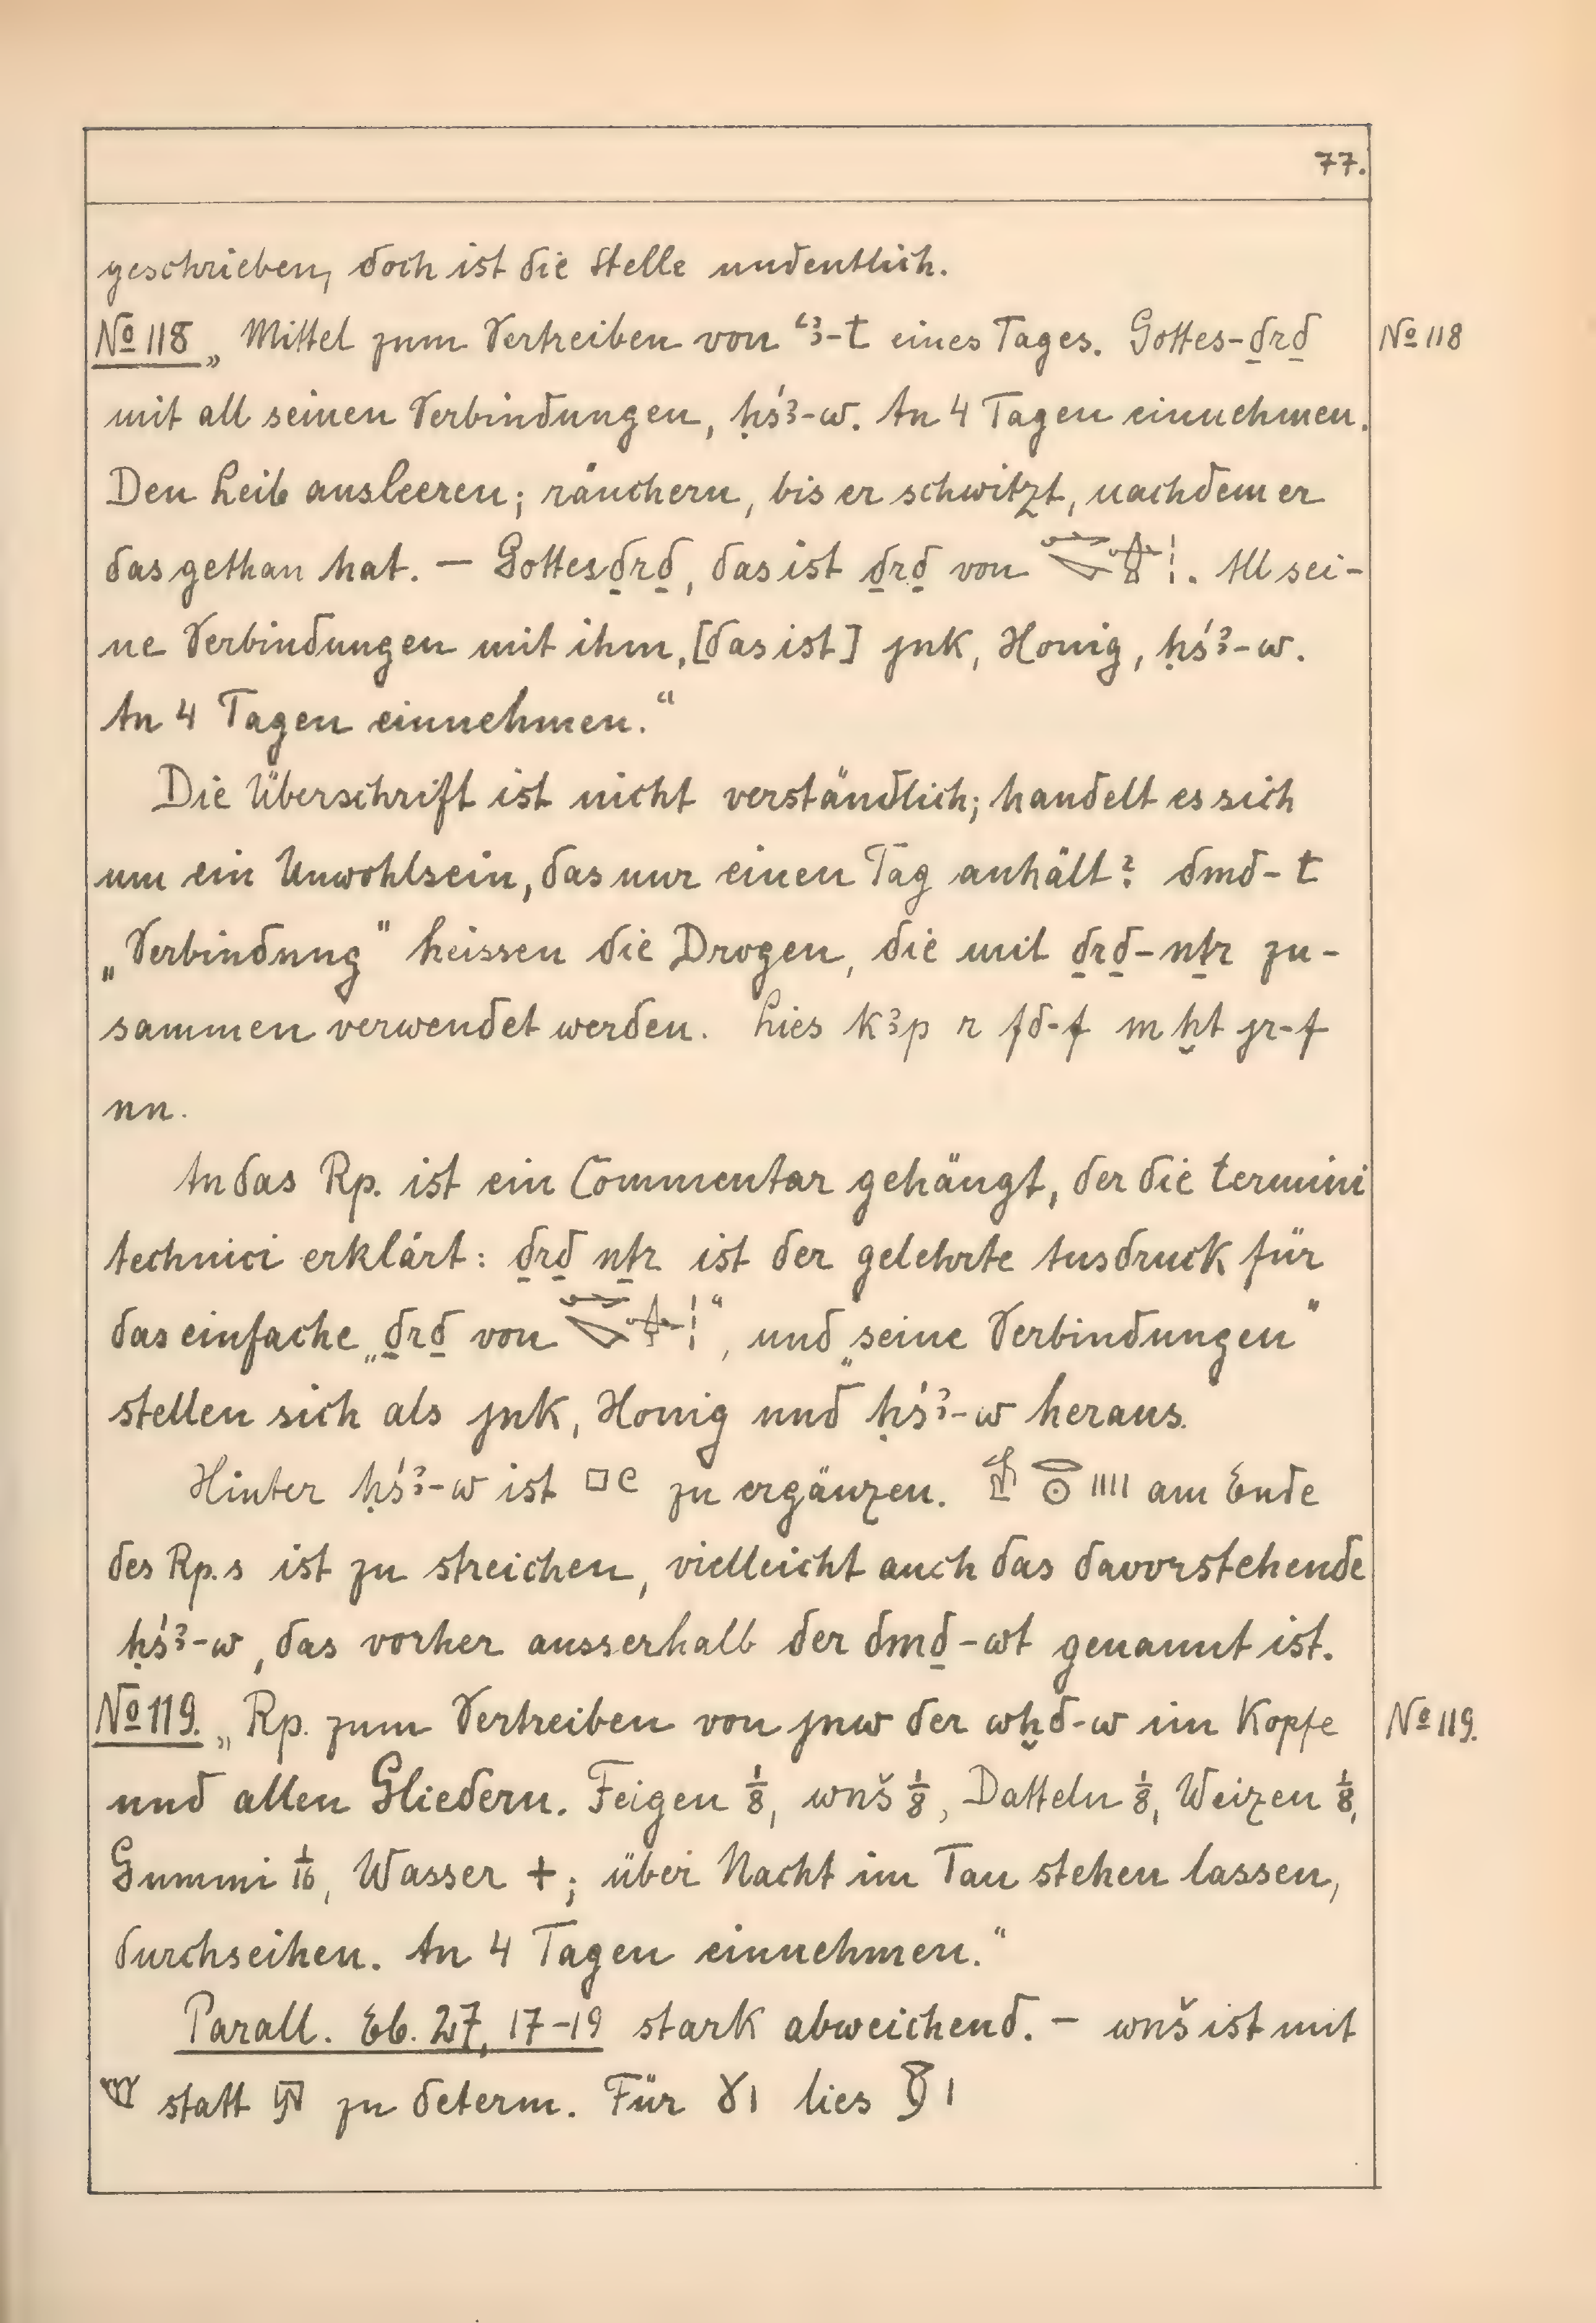 77.
geschrieben, doch ist die Stelle undeutlich.
No 118 „Mittel zum Vertreiben von ꜥꜣ-t eines Tages. Gottes-ḏrḏ
No 118
mit all seinen Verbindungen, ḥśꜣ-w. An 4 Tagen einnehmen.
Den Leib ausleeren; räuchern, bis er schwitzt, nachdem er
das gethan hat. — Gottesḏrḏ, das ist ḏrḏ von . All sei-
ne Verbindungen mit ihm, [das ist] jnk, Honig, ḥśꜣ-w.
An 4 Tagen einnehmen.“
Die Überschrift ist nicht verständlich; handelt es sich
um ein Unwohlsein, das nur einen Tag anhält? dmd-t
„Verbindung“ heissen die Drogen, die mit ḏrḏ-nṯr zu-
sammen verwendet werden. Lies kꜣp r fd-f m ḫt jr-f
nn.
An das Rp. ist ein Commentar gehängt, der die termini
technici erklärt: ḏrḏ nṯr ist der gelehrte Ausdruck für
das einfache „ḏrḏ von “, und „seine Verbindungen“
stellen sich als jnk, Honig und ḥśꜣ-w heraus.
Hinter ḥśꜣ-w ist zu ergänzen. am Ende
des Rp.s ist zu streichen, vielleicht auch das davorstehende
ḥśꜣ-w, das vorher ausserhalb der dmḏ-wt genannt ist.
No 119. „Rp. zum Vertreiben von jnw der wḫd-w im Kopfe
No 119.
und allen Gliedern. Feigen 1/8, wnš 1/8, Datteln 1/8, Weizen 1/8,
Gummi 1/16, Wasser +; über Nacht im Tau stehen lassen,
durchseihen. An 4 Tagen einnehmen.“
Parall. Eb. 27, 17-19 stark abweichend. — wnš ist mit
statt zu determ. Für lies